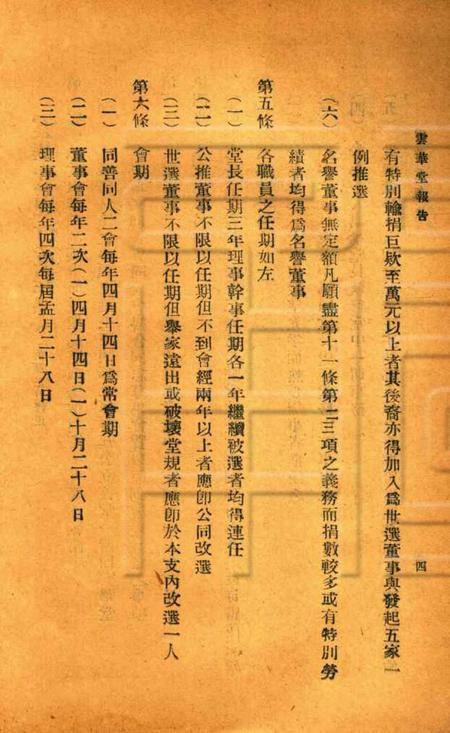 雲華堂報告
四
有特別輸捐巨款至萬元以上者其後裔亦得加入爲世選董事與發起五家一
例推選
(六)名譽董事無定額凡願盡第十一條第二三項之義務而捐數較多或有特別勞
績者均得爲名譽董事
第五條 各職員之任期如左
(一)堂長任期三年理事幹事任期各一年繼續被選者均得連任
(二)公推董事不限以任期但不到會經兩年以上者應卽公同改選
(三)世選董事不限以任期但舉家遠出或破壞堂規者應卽於本支內改選一人
第六條 會期
(一)同善同人二會每年四月十四日爲常會期
(二)董事會每年二次(一)四月十四日(一)十月二十八日
(三)理事會每年四次每屆孟月二十八日